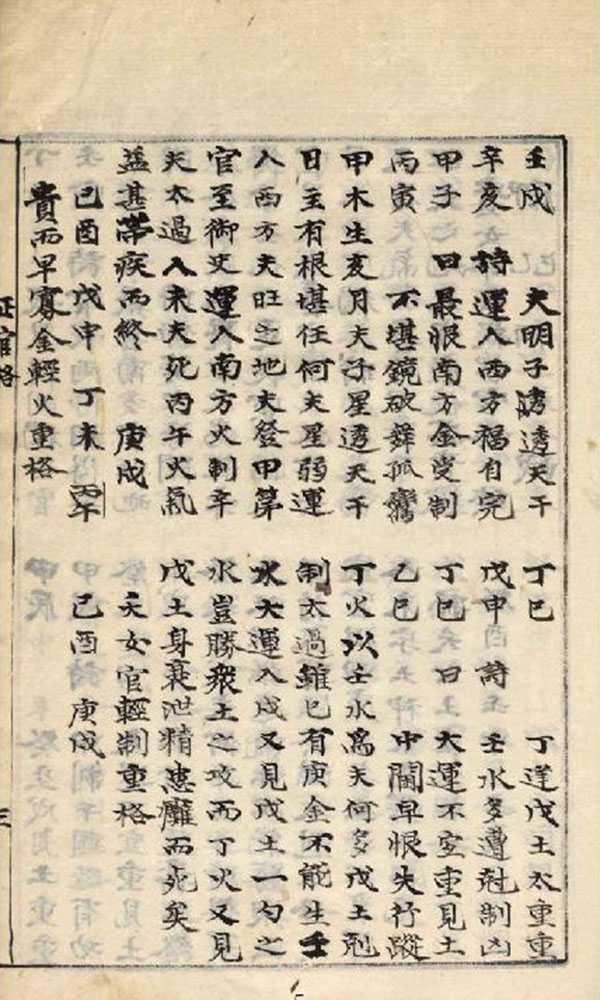 壬戌　　夫明子透透天干
辛亥　詩　運入西方福自完
甲子　　曰最恨南方金受制
丙寅　　　不堪鏡破舞孤鸞
甲木生亥月夫子星透天干
日主有根堪任何夫星弱運
入西方夫旺之地夫登甲第
官至御史運入南方火制辛
夫太過入未夫死丙午火氣
益甚帶疾而終　　庚戌
己酉　戊申　丁未　丙午
貴而早寡金輕火重格
丁巳　　　丁逢戊土太重重
戊申　詩　壬水多遭尅制凶
丁巳　　曰大運不宜重見土
乙巳　　　中閨早恨失行蹤
丁火以壬水為夫何多戊土剋
制太過雖巳有庚金不能生壬
水大運入戌又見戊土一勺之
水豈勝衆土之攻而丁火又見
戊土身衰泄精患癰而死矣
夭女官輕制重格
己酉　庚戌
正官格
三